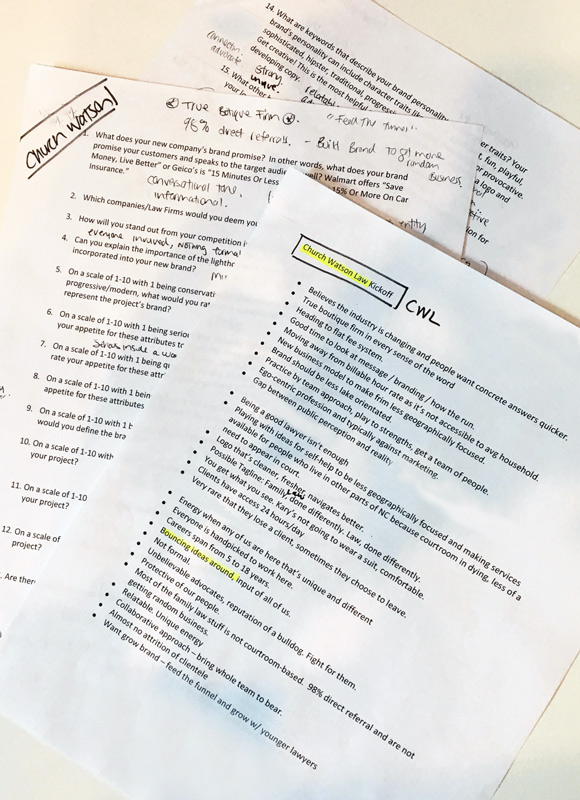 14. What are keywords that describe your brand personality
brand's personality can include character traits like
sophisticated, hipster, traditional, progressive
Get creative! This is the most helpful
developing copy.
advocate
strong
unique
relatable
15. What other
your
er traits? Your
t fun, playful,
or provocative.
a logo and
ion for
Church Watson!
True Botique Firm
98% direct referrals.
"Feed The Funnel"
- Build Brand To get more
random
Business
1. What does your new company's brand promise? In other words, what does your brand
promise your customers and speaks to the target audi well? Walmart offers "Save
Money, Live Better" or Geico's is "15 Minutes Or Less 15% Or More On Car
Insurance."
Conversational tone.
informational.
2. Which companies/Law Firms would you deem you
entity
3. How will you stand out from your competition i
everyone involved, nothing formal
4. Can you explain the importance of the lighth
incorporated into your new brand?
5. On a scale of 1-10 with 1 being conservati
progressive/modern, what would you rat
represent the project's brand?
6. On a scale of 1-10 with 1 being seriou
your appetite for these attributes t
Serious inside a
7. On a scale of 1-10 with 1 being q
rate your appetite for these attr
8. On a scale of 1-10 with 1 bein
your appetite for these attributes
9. On a scale of 1-10 with 1 b
would you define the bra
10. On a scale of 1-10 with
your project?
11. On a scale of 1-10
your project?
12. On a scale of
project?
Are ther
Church Watson Law Kickoff
CWL
• Believes the industry is changing and people want concrete answers quicker.
• True boutique firm in every sense of the word
• Good time to look at message / branding / how the run.
• Heading to flat fee system.
• Moving away from billable hour rate as it's not accessible to avg household.
• New business model to make Frim less geographically focused.
• Brand should be less lake orientated.
• Practice by team approach, play to strengths, get a team of people.
• Ego-centric profession and typically against marketing.
• Gap between public perception and reality
• Being a good lawyer isn't enough
• Playing with ideas for self-help to be less geographically focused and making services
available for people who live in other parts of NC because courtroom in dying, less of a
need to appear in court.
• Logo that's cleaner, fresher, navigates better.
• Possible Tagline: Family Law done differently. Law, done differently.
• You get what you see. Kary's not going to wear a suit, comfortable.
• Clients have access 24 hours/day
• Very rare that they lose a client, sometimes they choose to leave.
• Energy when any of us are here that's unique and different
• Everyone is handpicked to work here.
• Careers span from 5 to 18 years.
• Bouncing ideas around, input of all of us.
• Not formal.
• Unbelievable advocates, reputation of a bulldog. Fight for them.
• Protective of our people.
• Most of the family law stuff is not courtroom-based. 98% direct referral and are not
getting random business.
• Relatable. Unique energy
• Collaborative approach – bring whole team to bear.
• Almost no attrition of clientele
• Want grow brand – feed the funnel and grow w/ younger lawyers